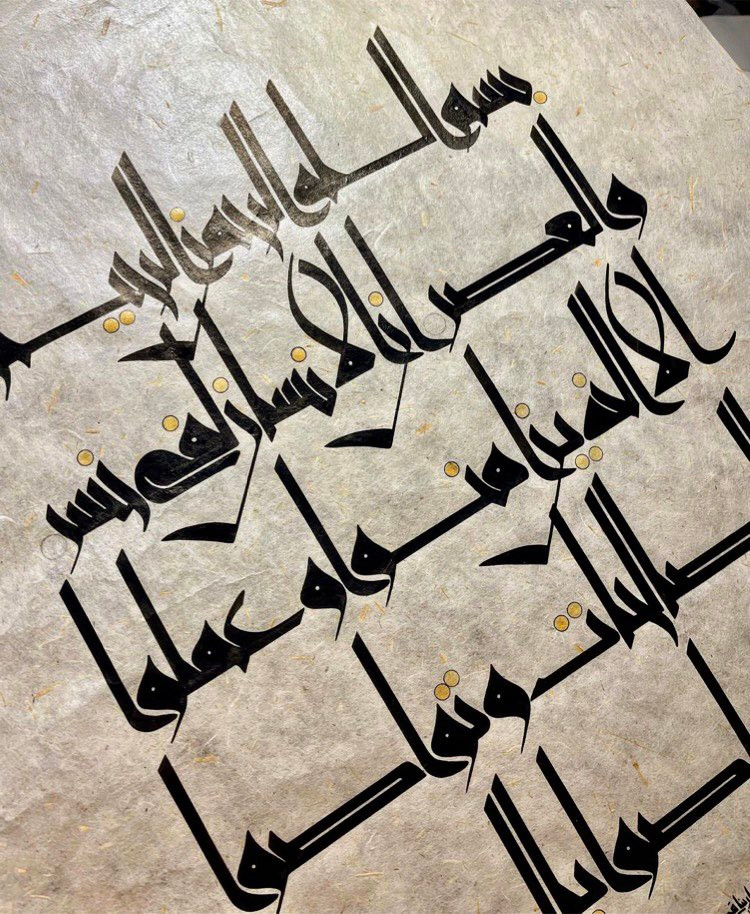 بسم الله الرحمن الرحيم
والعصر ان الانسان لفي خسر
الا الذين امنوا وعملوا
الصالحات وتواصوا
صوا بال